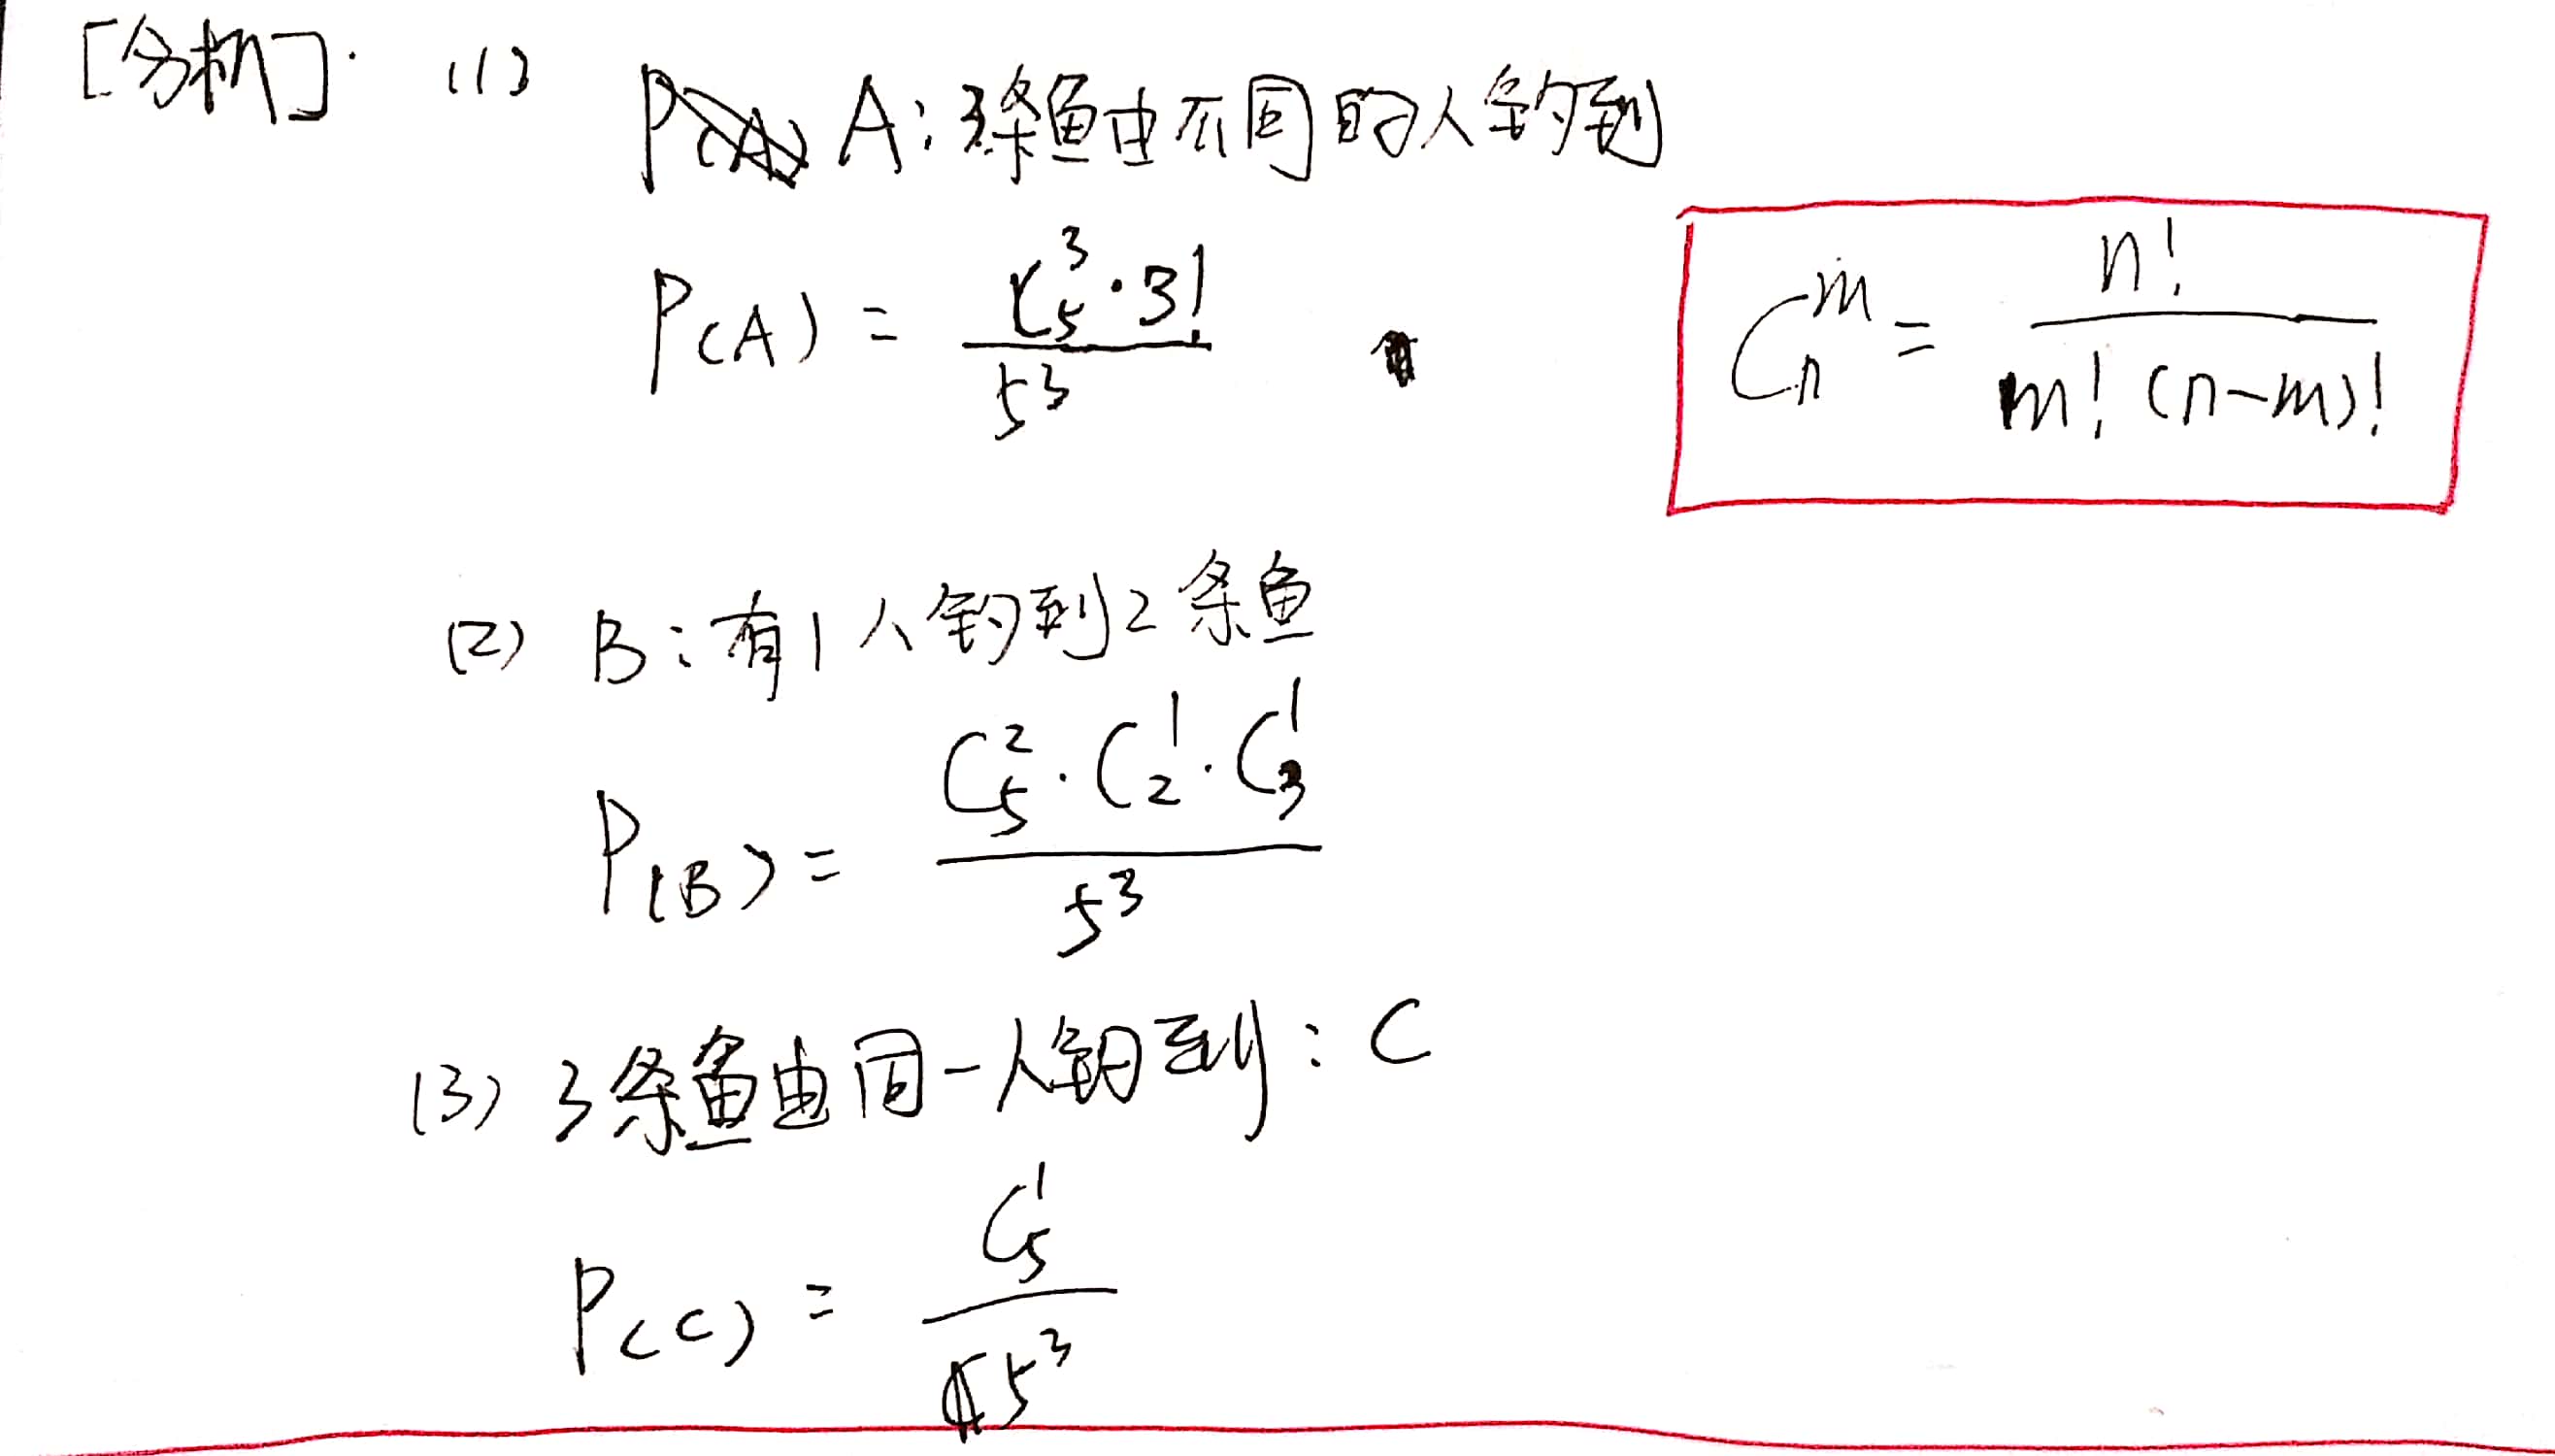 [分析]. (1) A: 3条鱼由不同的人钓到
P(A) = C₅³·3! / 5³
Cₙᵐ = n! / m!(n-m)!
(2) B: 有1人钓到2条鱼
P(B) = C₅²·C₂¹·C₃¹ / 5³
(3) 3条鱼由同一人钓到: C
P(C) = C₅¹ / 5³